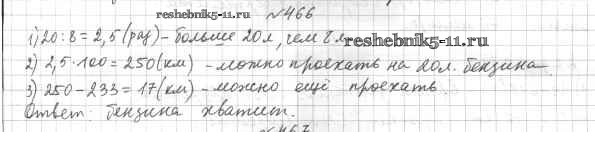 reshebnik5-11.ru №466
1) 20:8=2,5(раз)-больше 20л, чем 8 л. reshebnik5-11.ru
2) 2,5·100=250(км) -можно проехать на 20л. бензина
3) 250-233=17(км)-можно ещё проехать.
Ответ: бензина хватит.
№467